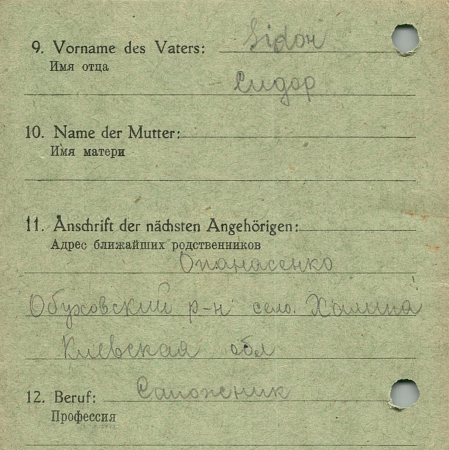 9. Vorname des Vaters: Sidor
Имя отца
Сидор
10. Name der Mutter:
Имя матери
11. Anschrift der nächsten Angehörigen:
Адрес ближайших родственников
Опанасенко
Обуховский р-н село Халипа
Киевская обл
12. Beruf: Сапожник
Профессия